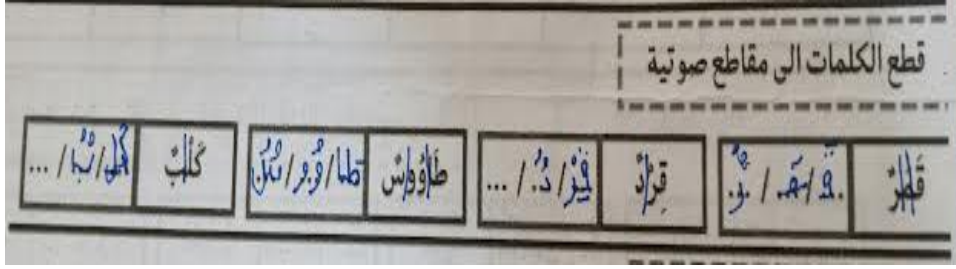 قطع الكلمات الى مقاطع صوتية
قَطَرٌ قَ / طَـ / رٌ قِرْدٌ قِرْ / دٌ / ... طَاوُوسٌ طا / وُو / سٌ كَلْبٌ كَلْ / بٌ / ...